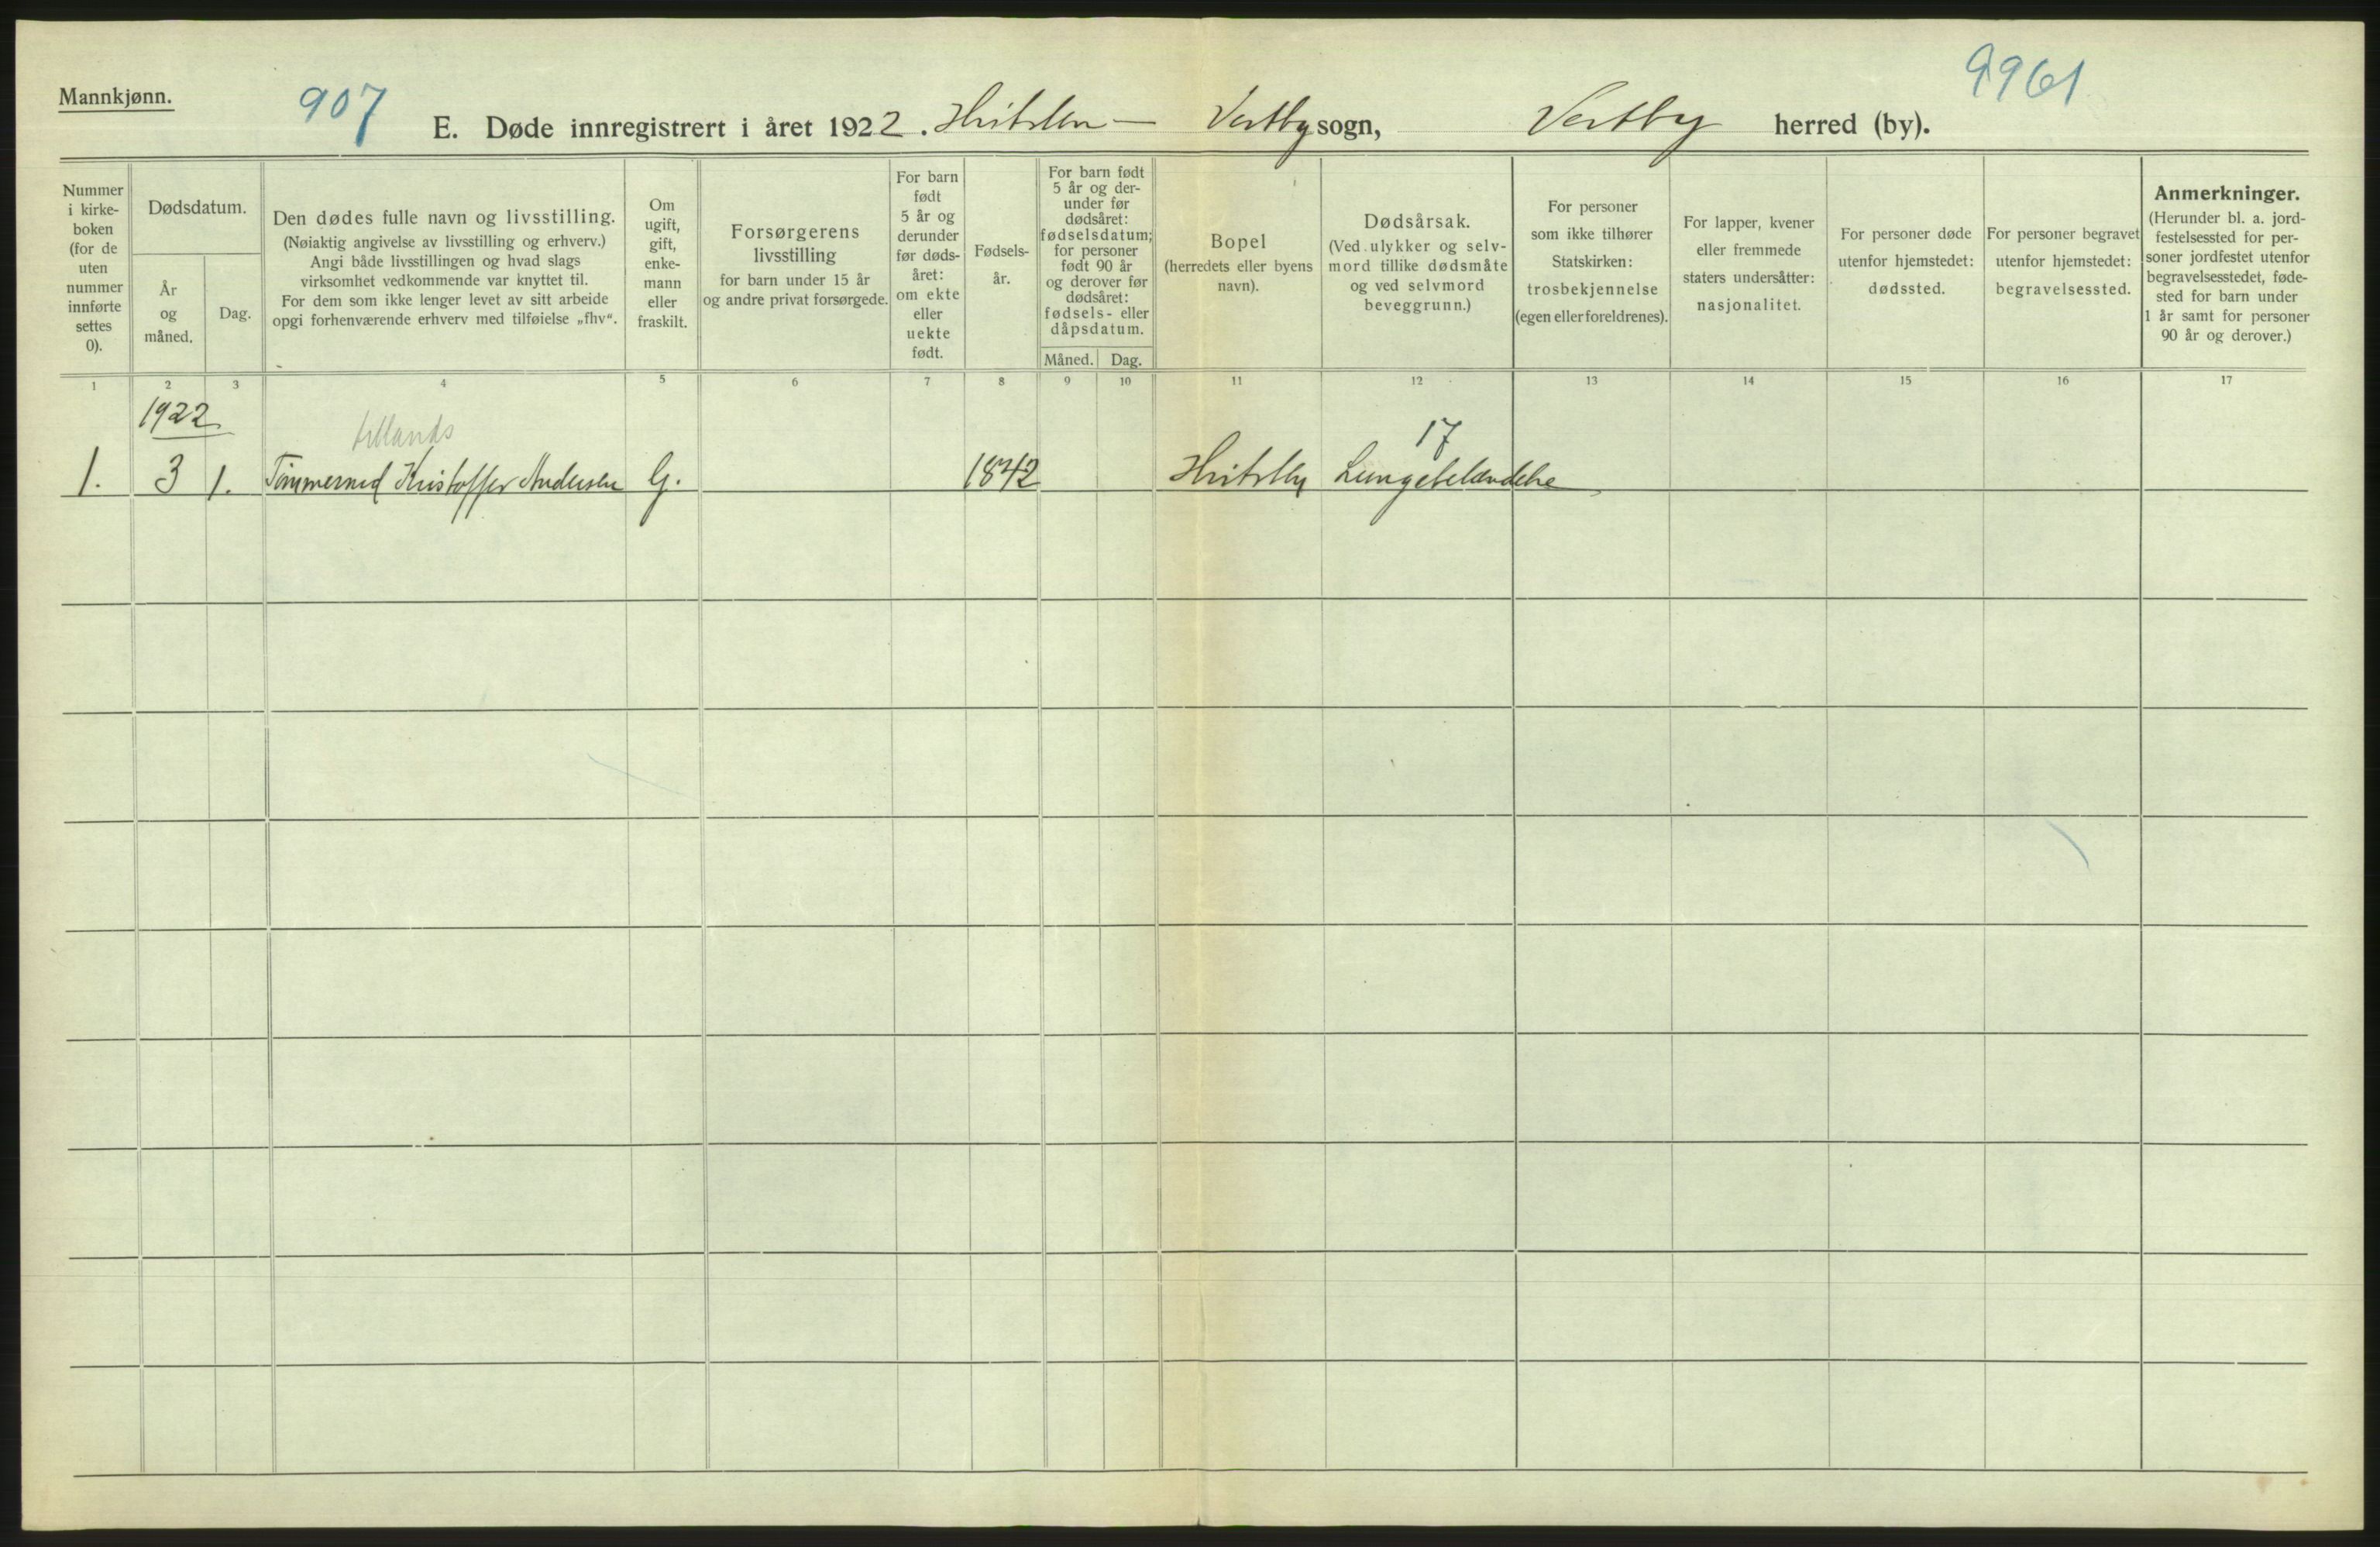 Mannkjønn.
907
9961
E. Døde innregistrert i året 1922. Hvitsten — Vestby sogn, Vestby herred (by).
Nummer
i kirke-
boken
(for de
uten
nummer
innførte
settes
0).
Dødsdatum.
År
og
måned.
Dag.
Den dødes fulle navn og livsstilling.
(Nøiaktig angivelse av livsstilling og erhverv.)
Angi både livsstillingen og hvad slags
virksomhet vedkommende var knyttet til.
For dem som ikke lenger levet av sitt arbeide
opgi forhenværende erhverv med tilføielse „fhv“.
Om
ugift,
gift,
enke-
mann
eller
fraskilt.
Forsørgerens
livsstilling
for barn under 15 år
og andre privat forsørgede.
For barn
født
5 år og
derunder
før døds-
året:
om ekte
eller
uekte
født.
Fødsels-
år.
For barn født
5 år og der-
under før
dødsåret:
fødselsdatum;
for personer
født 90 år
og derover før
dødsåret:
fødsels- eller
dåpsdatum.
Måned. Dag.
Bopel
(herredets eller byens
navn).
Dødsårsak.
(Ved ulykker og selv-
mord tillike dødsmåte
og ved selvmord
beveggrunn.)
For personer
som ikke tilhører
Statskirken:
trosbekjennelse
(egen eller foreldrenes).
For lapper, kvener
eller fremmede
staters undersåtter:
nasjonalitet.
For personer døde
utenfor hjemstedet:
dødssted.
For personer begravet
utenfor hjemstedet:
begravelsessted.
Anmerkninger.
(Herunder bl. a. jord-
festelsessted for per-
soner jordfestet utenfor
begravelsesstedet, føde-
sted for barn under
1 år samt for personer
90 år og derover.)
1 2 3 4 5 6 7 8 9 10 11 12 13 14 15 16 17
1922
17
1. 3 1. Tømmermd Kristoffer Andersen G. 1842 Hvitsten Lungebetændelse